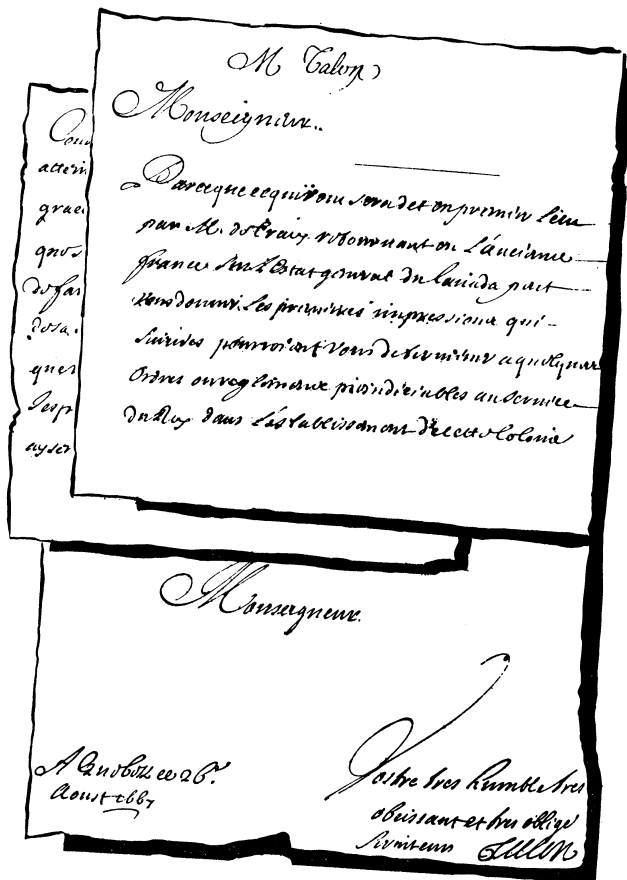 M Talon
Monseigneur.
Parceque ce qui vous sera det en premier lieu
par M. de Tracy retournant en L'anciane
france sur L'Estat general du Canada peut
vous donner les premieres impressions qui
suivies pourroient vous determiner a quelques
Ordres ou reglemens preiudiciables au service
du Roy dans L'establissement de cette Colonie
attein
grac
quos
de fai
quer
Monseigneur.
A Quebec ce 26e.
Aoust 1667
Vostre tres humble tres
obeissant et tres oblige
serviteur Talon